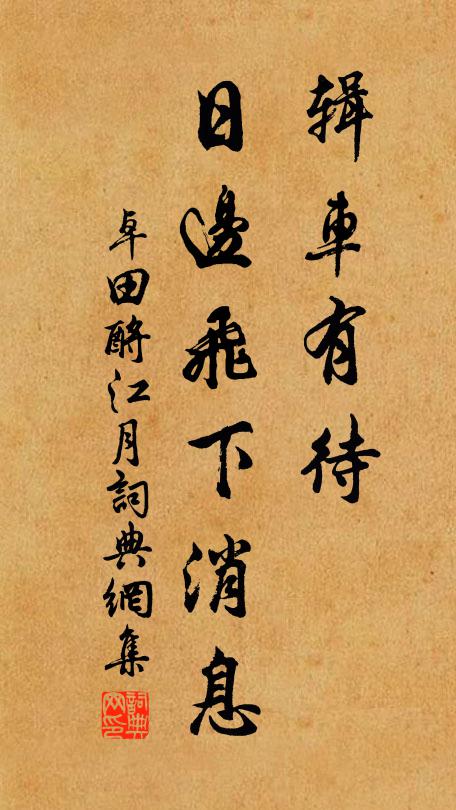 輯車有待
日邊飛下消息
卓田酹江月詞典網集
詞典网印